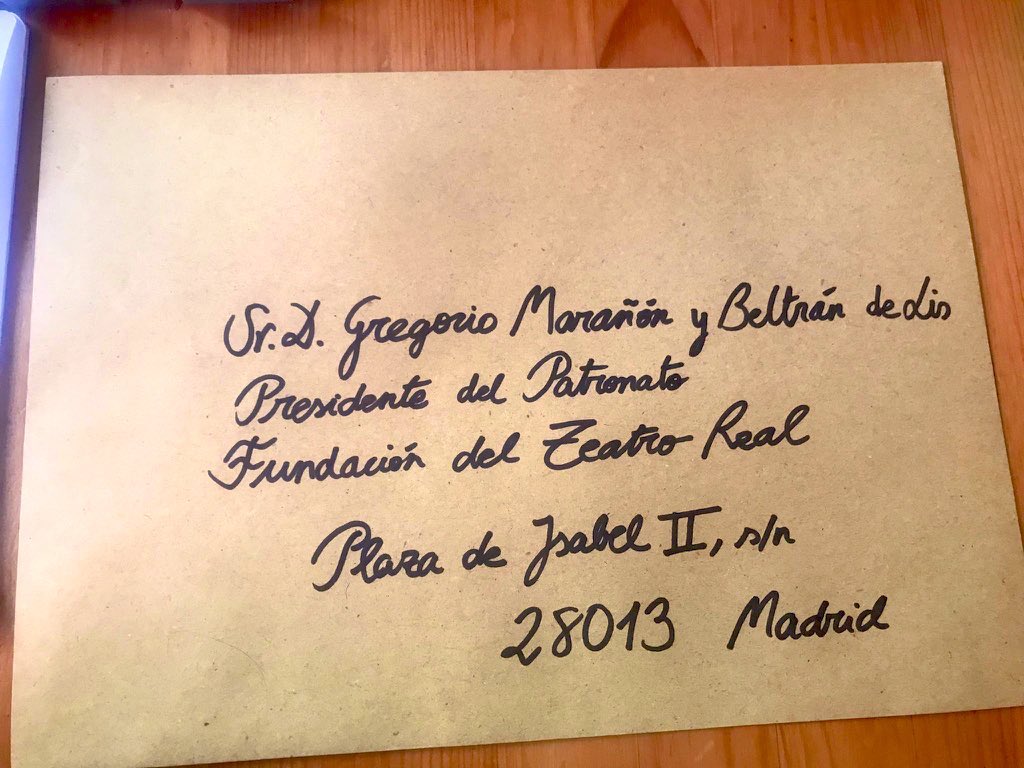 Sr. D. Gregorio Marañón y Beltrán de Lis
Presidente del Patronato
Fundación del Teatro Real
Plaza de Isabel II, s/n
28013 Madrid